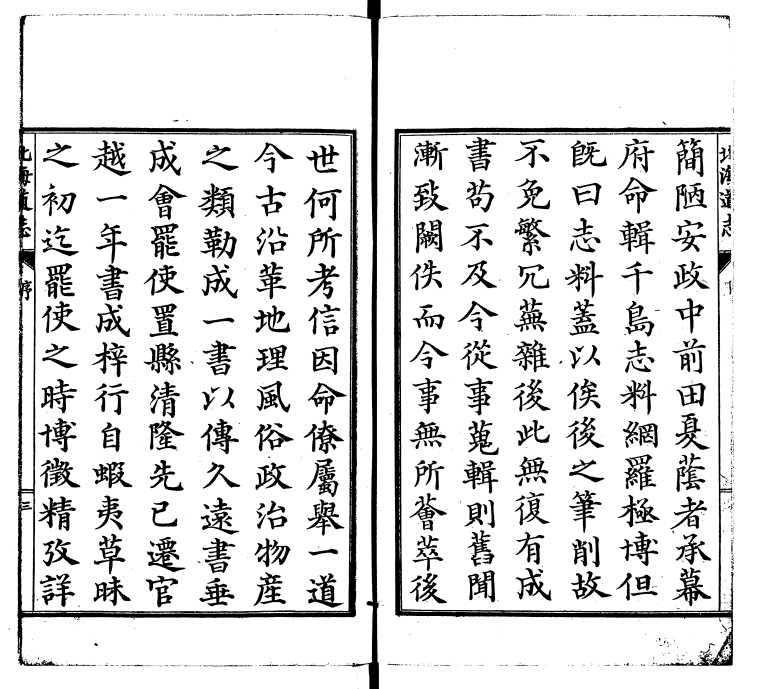 北海道志
簡陋安政中前田夏蔭者承幕
府命輯千島志料網羅極博但
旣曰志料蓋以俟後之筆削故
不免繁冗蕪雜後此無復有成
書苟不及今從事蒐輯則舊聞
漸致闕佚而今事無所薈萃後
世何所考信因命僚屬舉一道
今古沿革地理風俗政治物産
之類勒成一書以傳久遠書垂
成會罷使置縣清隆先已遷官
越一年書成梓行自蝦夷草昧
之初迄罷使之時博徵精攷詳
北海道志
序
三